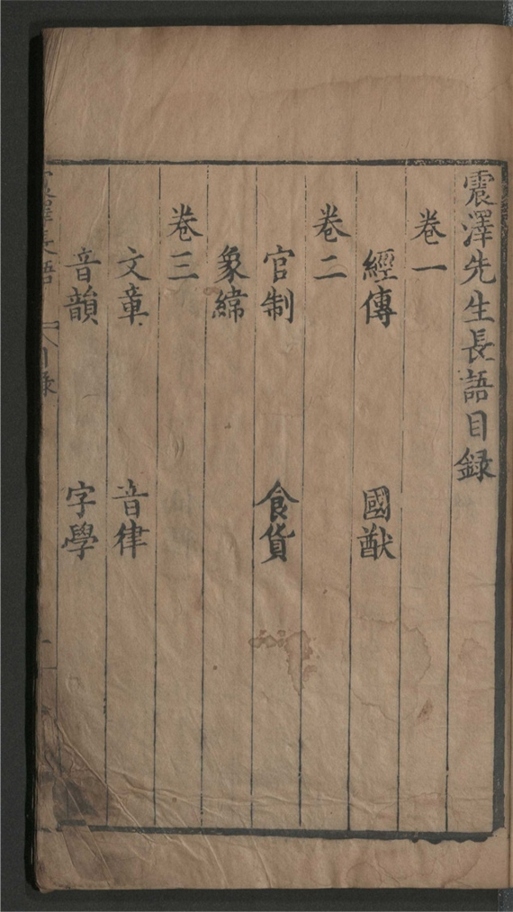 震澤先生長語目録
卷一
經傳 國猷
卷二
官制 食貨
象緯
卷三
文章 音律
音韻 字學